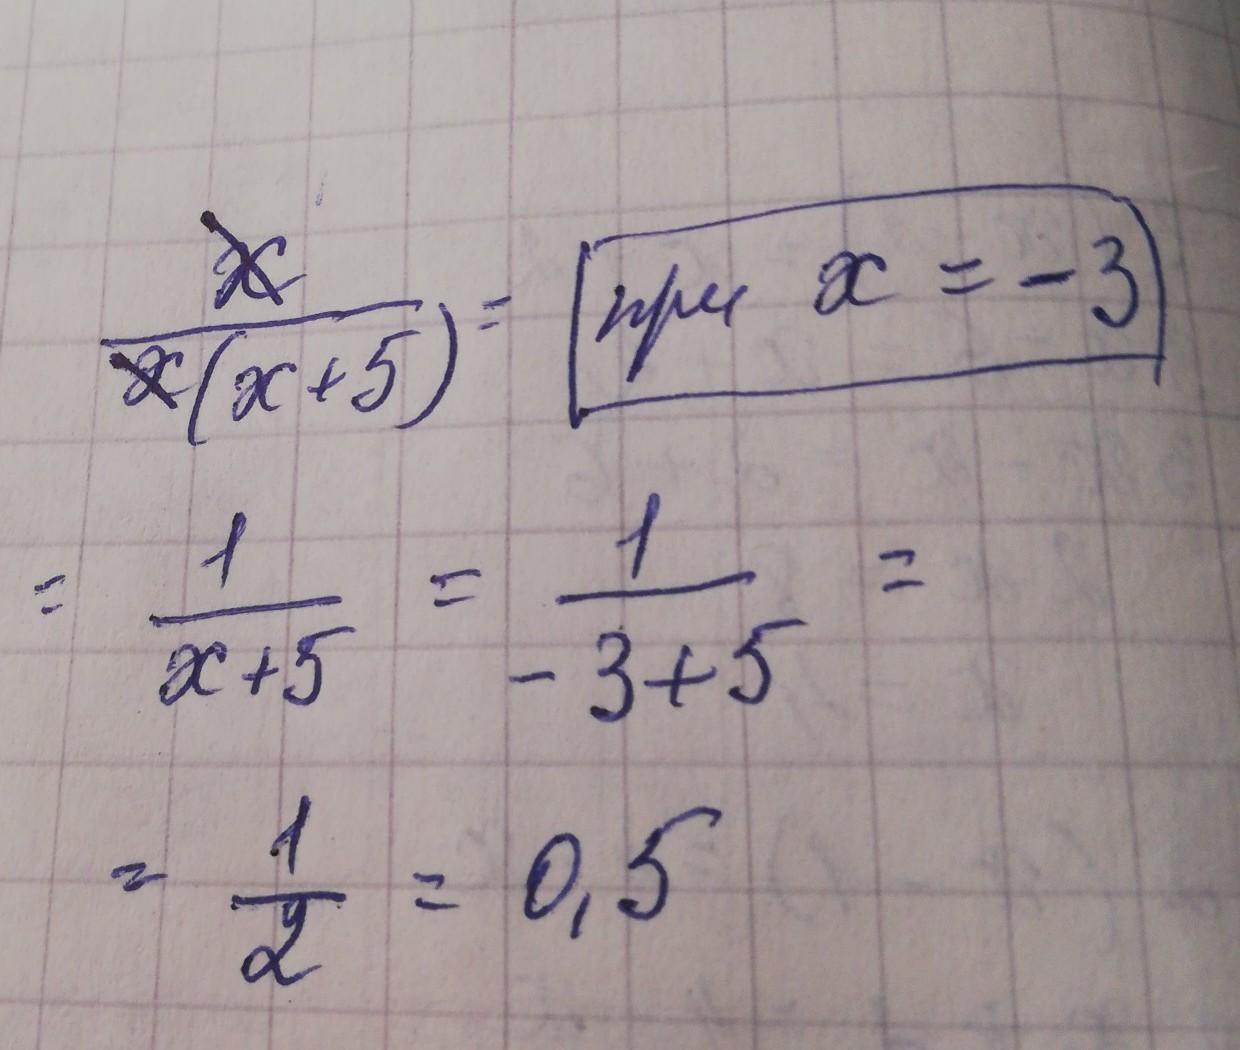 x
x(x+5) = при x = -3
= 1/(x+5) = 1/(-3+5) =
= 1/2 = 0,5